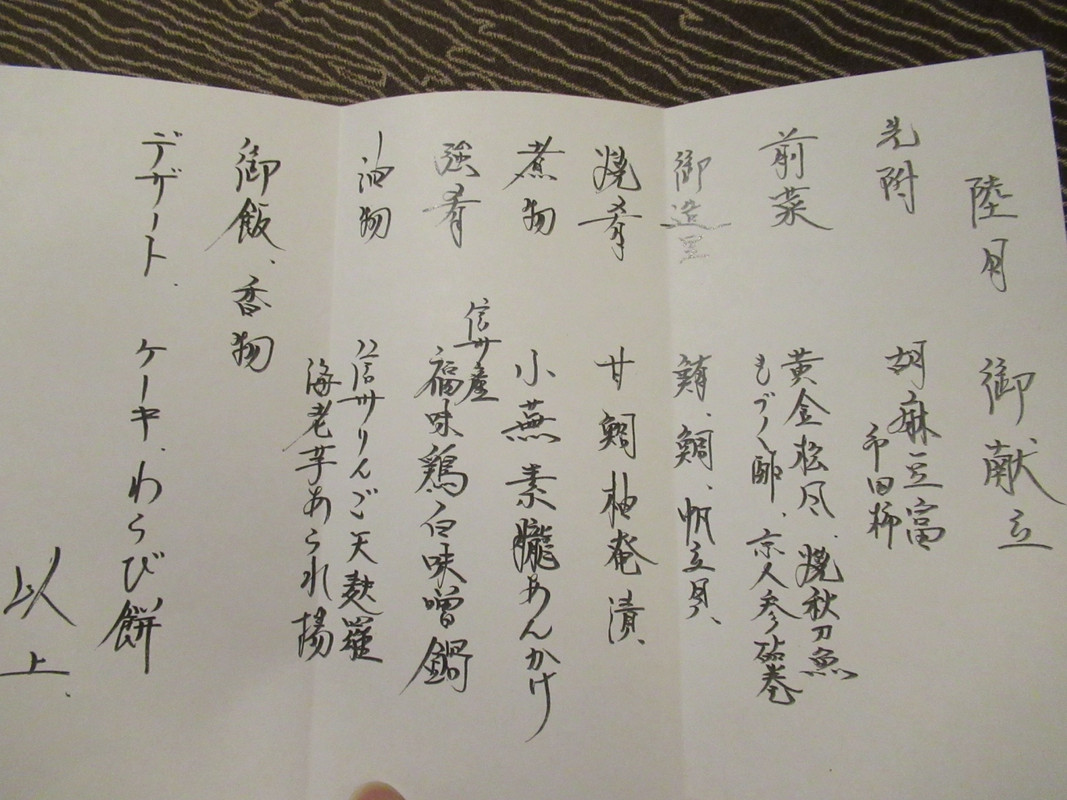 陸月 御献立
先附 胡麻豆富
市田柿
前菜 黄金松风、焼秋刀魚
もづく酢、京人参砧巻
御造里 鮪、鯛、帆立貝、
焼肴 甘鯛柚菴漬、
煮物 小蕪素朧あんかけ
強肴 信州産
福味鶏白味噌鍋
油物 信州りんご天麩羅
海老芋あられ揚
御飯、香物
デザート、ケーキ、わらび餅
以上、